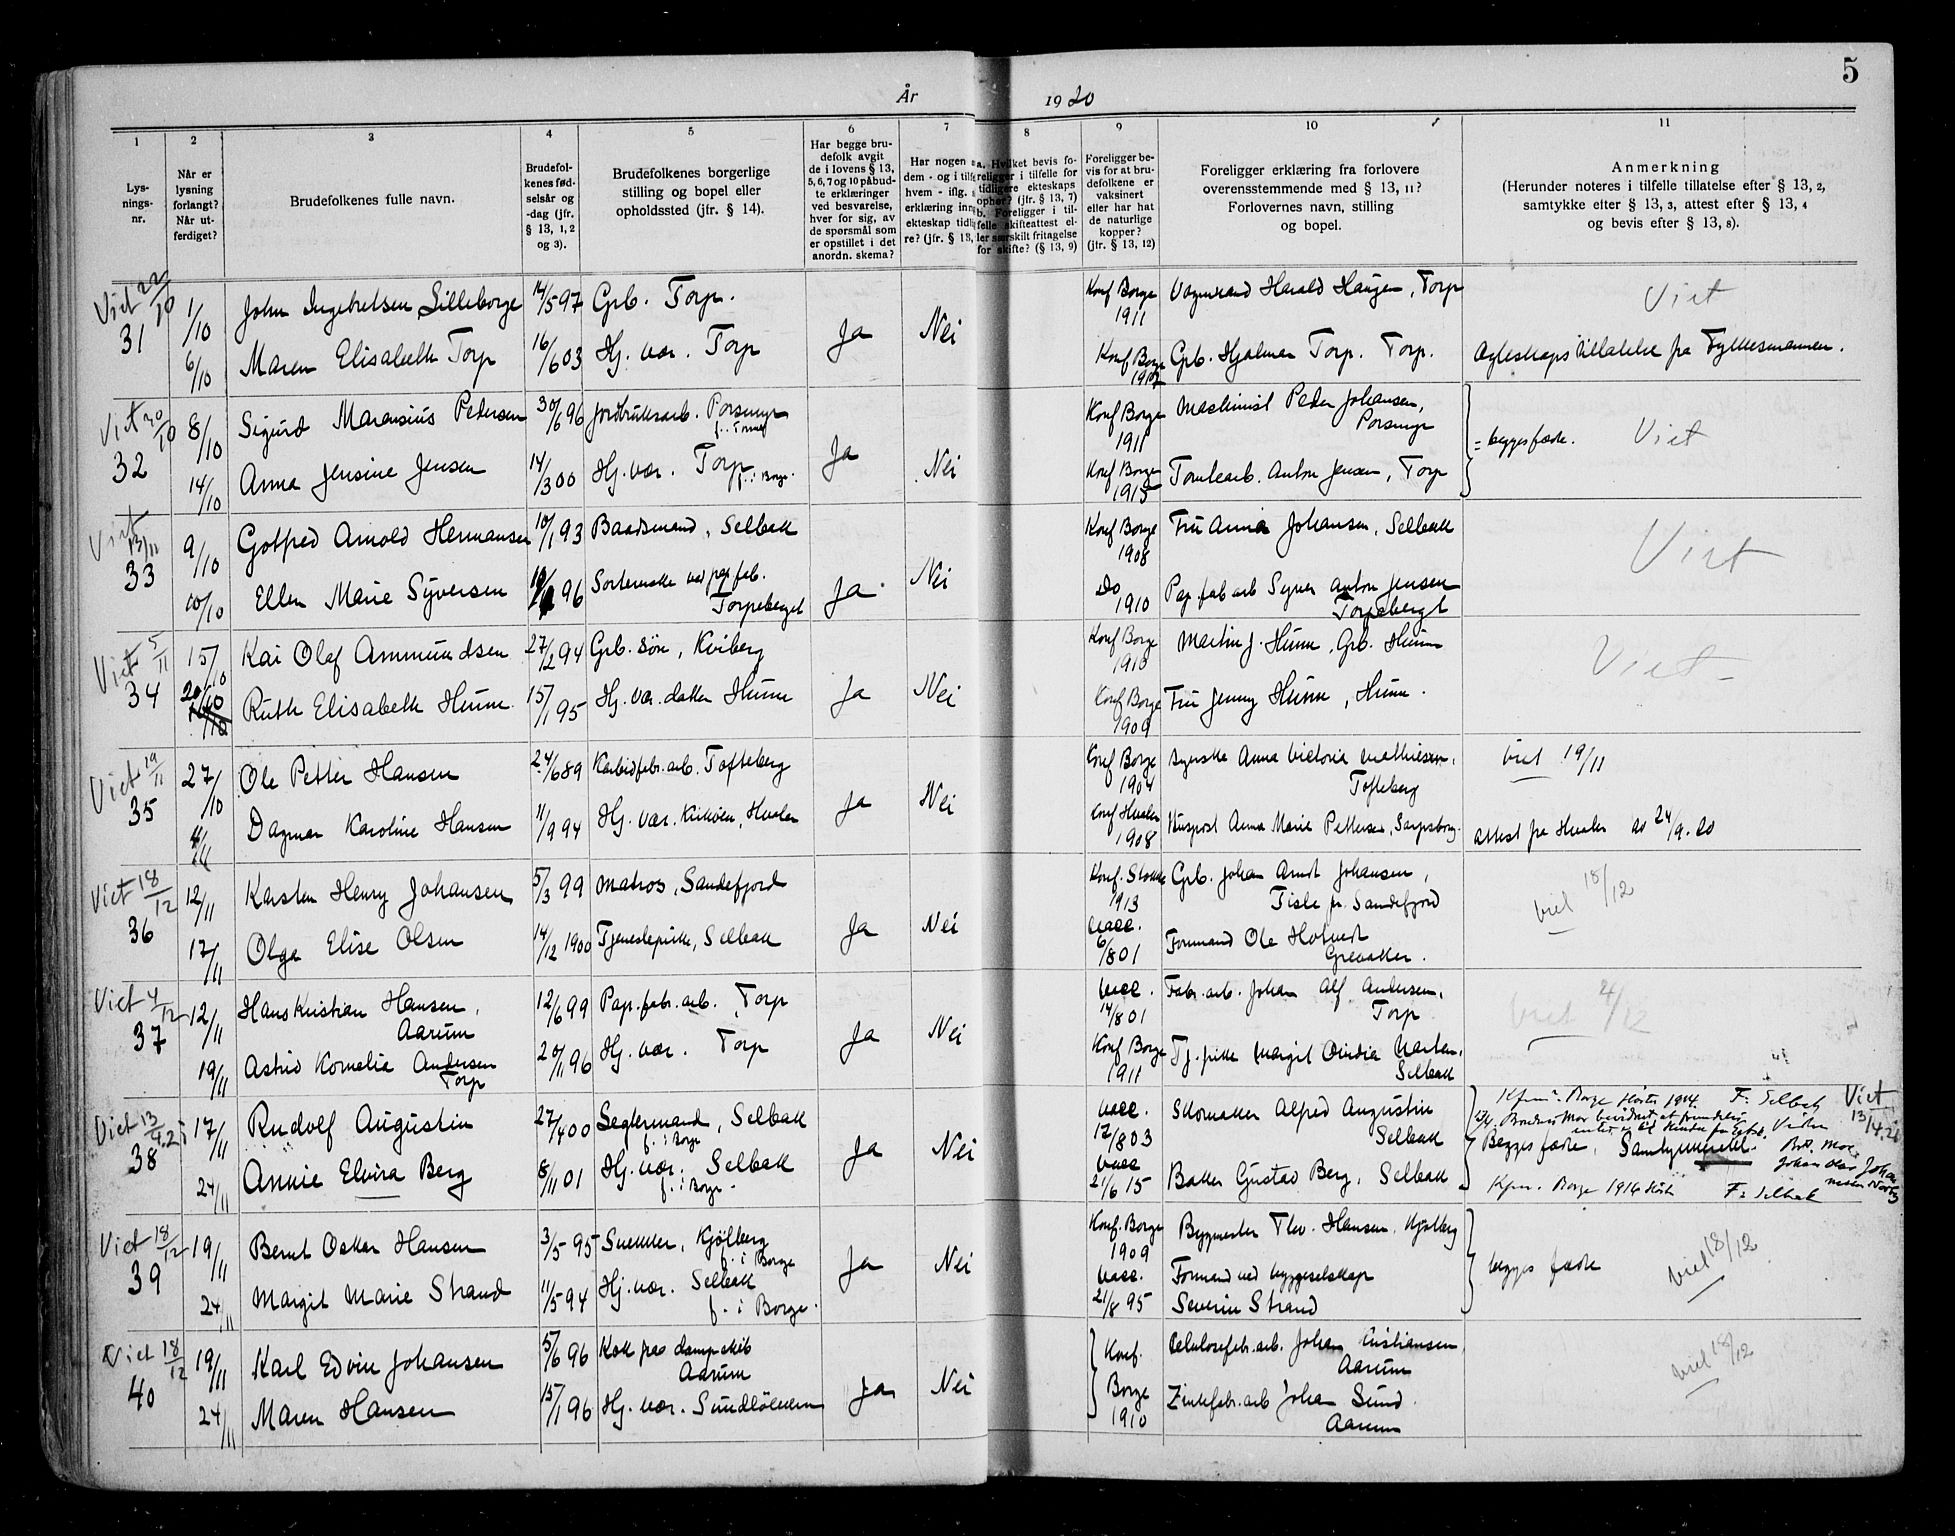 5
År 1920
1
2
3
4
5
6
7
8
9
10
11
Lys-
nings-
nr.
Når er
lysning
forlangt?
Når ut-
ferdiget?
Brudefolkenes fulle navn.
Brudefol-
kenes fød-
selsår og
-dag (jfr.
§ 13, 1, 2
og 3).
Brudefolkenes borgerlige
stilling og bopel eller
opholdssted (jfr. § 14).
Har begge bru-
defolk avgit
de i lovens § 13,
5, 6, 7 og 10 påbud-
te erklæringer
ved besvarelse,
hver for sig, av
de spørsmål som
er opstillet i det
anordn. skema?
Har nogen a
dem - og i tilfe
hvem - iflg. s
erklæring inn
ekteskap tidli
re? (jfr. § 13,
a. Hvilket bevis fo-
religger i tilfelle for
tidligere ekteskaps
ophør? (§ 13, 7)
b. Foreligger i til-
felle skifteattest el-
ler særskilt fritagelse
for skifte? (§ 13, 9)
Foreligger be-
vis for at bru-
defolkene er
vaksinert
eller har hat
de naturlige
kopper?
(jfr. § 13, 12)
Foreligger erklæring fra forlovere
overensstemmende med § 13, 11?
Forlovernes navn, stilling
og bopel.
Anmerkning
(Herunder noteres i tilfelle tillatelse efter § 13, 2,
samtykke efter § 13, 3, attest efter § 13, 4
og bevis efter § 13, 8).
Viet 22/10
31 1/10 John Ingebretsen Lilleborge 14/5 97 Grb. Torp. Konf Borge 1911 Harald Haugen, Torp Viet
6/10 Maren Elisabeth Torp 16/6 03 Hj. vær. Torp Ja Nei Konf Borge Grb. Hjalmar Torp. Torp. tillatelse fra Fylkesmannen.
Viet 30/10
32 8/10 Sigurd Marensius Pedersen 30/6 96 Jordbruksarb. Konf Borge 1911 Maskinist Peder Johansen, = begges fædre. Viet
14/10 Anna Jensine Jensen 14/3 00 Hj. vær. Torp f. i Borge. Ja Nei Konf Borge 1915 Tomtearb. Anton Jensen, Torp
Viet 13/11
33 9/10 Gotfred Arnold Hermansen 10/1 93 Baadsmand, Selbak Konf Borge 1908 Fru Anna Johansen, Selbak Viet
10/10 Ellen Marie Syversen 96 Sorterske ved pap fab. Torpeberget Ja Nei Do 1910 Pap. fab arb Syver Anton Jensen Torpebergt
Viet 5/11
34 15/10 Kai Olaf Ammundsen 27/2 94 Grb. søn, Kviberg Konf Borge 1910 Martin J. Hunn, Grb. Hunn Viet
20/10 Ruth Elisabeth Hunn 15/1 95 Hj. vær. datter Hunn Ja Nei Konf Borge 1909 Fru Jenny Hunn, Hunn.
Viet 19/11
35 27/10 Ole Petter Hansen 24/6 89 Karbidfabr. arb. Tofteberg Konf Borge 1904 Syerske Anna Victoria Mathiesen, Tofteberg viet 19/11
4/11 Dagmar Karoline Hansen 11/9 94 Hj. vær. Kirköen, Hvaler Ja Nei Konf Hvaler 1908 Anna Marie Pettersen, Sarpsborg. attest fra Hvaler av 24/9. 20
Viet 18/12
36 12/11 Karsten Henry Johansen 5/3 99 Matros, Sandefjord Konf. Stokke 1913 Grb. Johan Arndt Johansen, pr. Sandefjord viet 18/12
17/11 Olga Elise Olsen 14/12 1900 Tjenestepike, Selbak Ja Nei Vacc. 6/8 01 Formand Ole Greaaker.
Viet 4/12
37 12/11 Hans Kristian Hansen, Aarum 12/6 99 Pap. fabr. arb. Torp Vacc. 14/8 01 Fabr. arb. Johan Alf Andersen, Torp viet 4/12
19/11 Astrid Kornelia Andersen Torp 20/11 96 Hj. vær. Torp Ja Nei Konf Borge 1911 Tj. pike Margit Selbak
Viet 13/4.25
38 17/11 Rudolf Augustin 27/4 00 Seglermand, Selbak f. i Borge Vacc. 12/8 03 Skomaker Alfred Augustin Selbak Borge Höst 1914 F: Selbak Viet 13/4.25
24/11 Annie Elvira Berg 8/11 01 Hj. vær. Selbak f. i Borge Ja Nei Vacc 21/6 15 Baker Gustav Berg, Selbak Begges fædre, Borge 1916 Höst F: Selbak
Viet 18/12
39 19/11 Bernt Oskar Hansen 3/5 95 Snekker, Kjölberg f. i Borge Konf. Borge 1909 Bygmester Thv. Hansen, Kjölberg begges fædre viet 18/12
24/11 Margit Marie Strand 11/5 94 Hj. vær. Selbak f. i Borge. Ja Nei Vacc. 21/8 95 Formand ved byggeselskap Severin Strand
Viet 18/12
40 19/11 Karl Edvin Johansen 5/6 96 Kok paa dampskib Aarum Konf. Celulosefabr. arb. Johan Kristiansen, Aarum viet 18/12
24/11 Maren Hansen 15/1 96 Hj. vær. Sundlökken Ja Nei Borge 1910 Zinkfabr. arb Johan Sund. Aarum